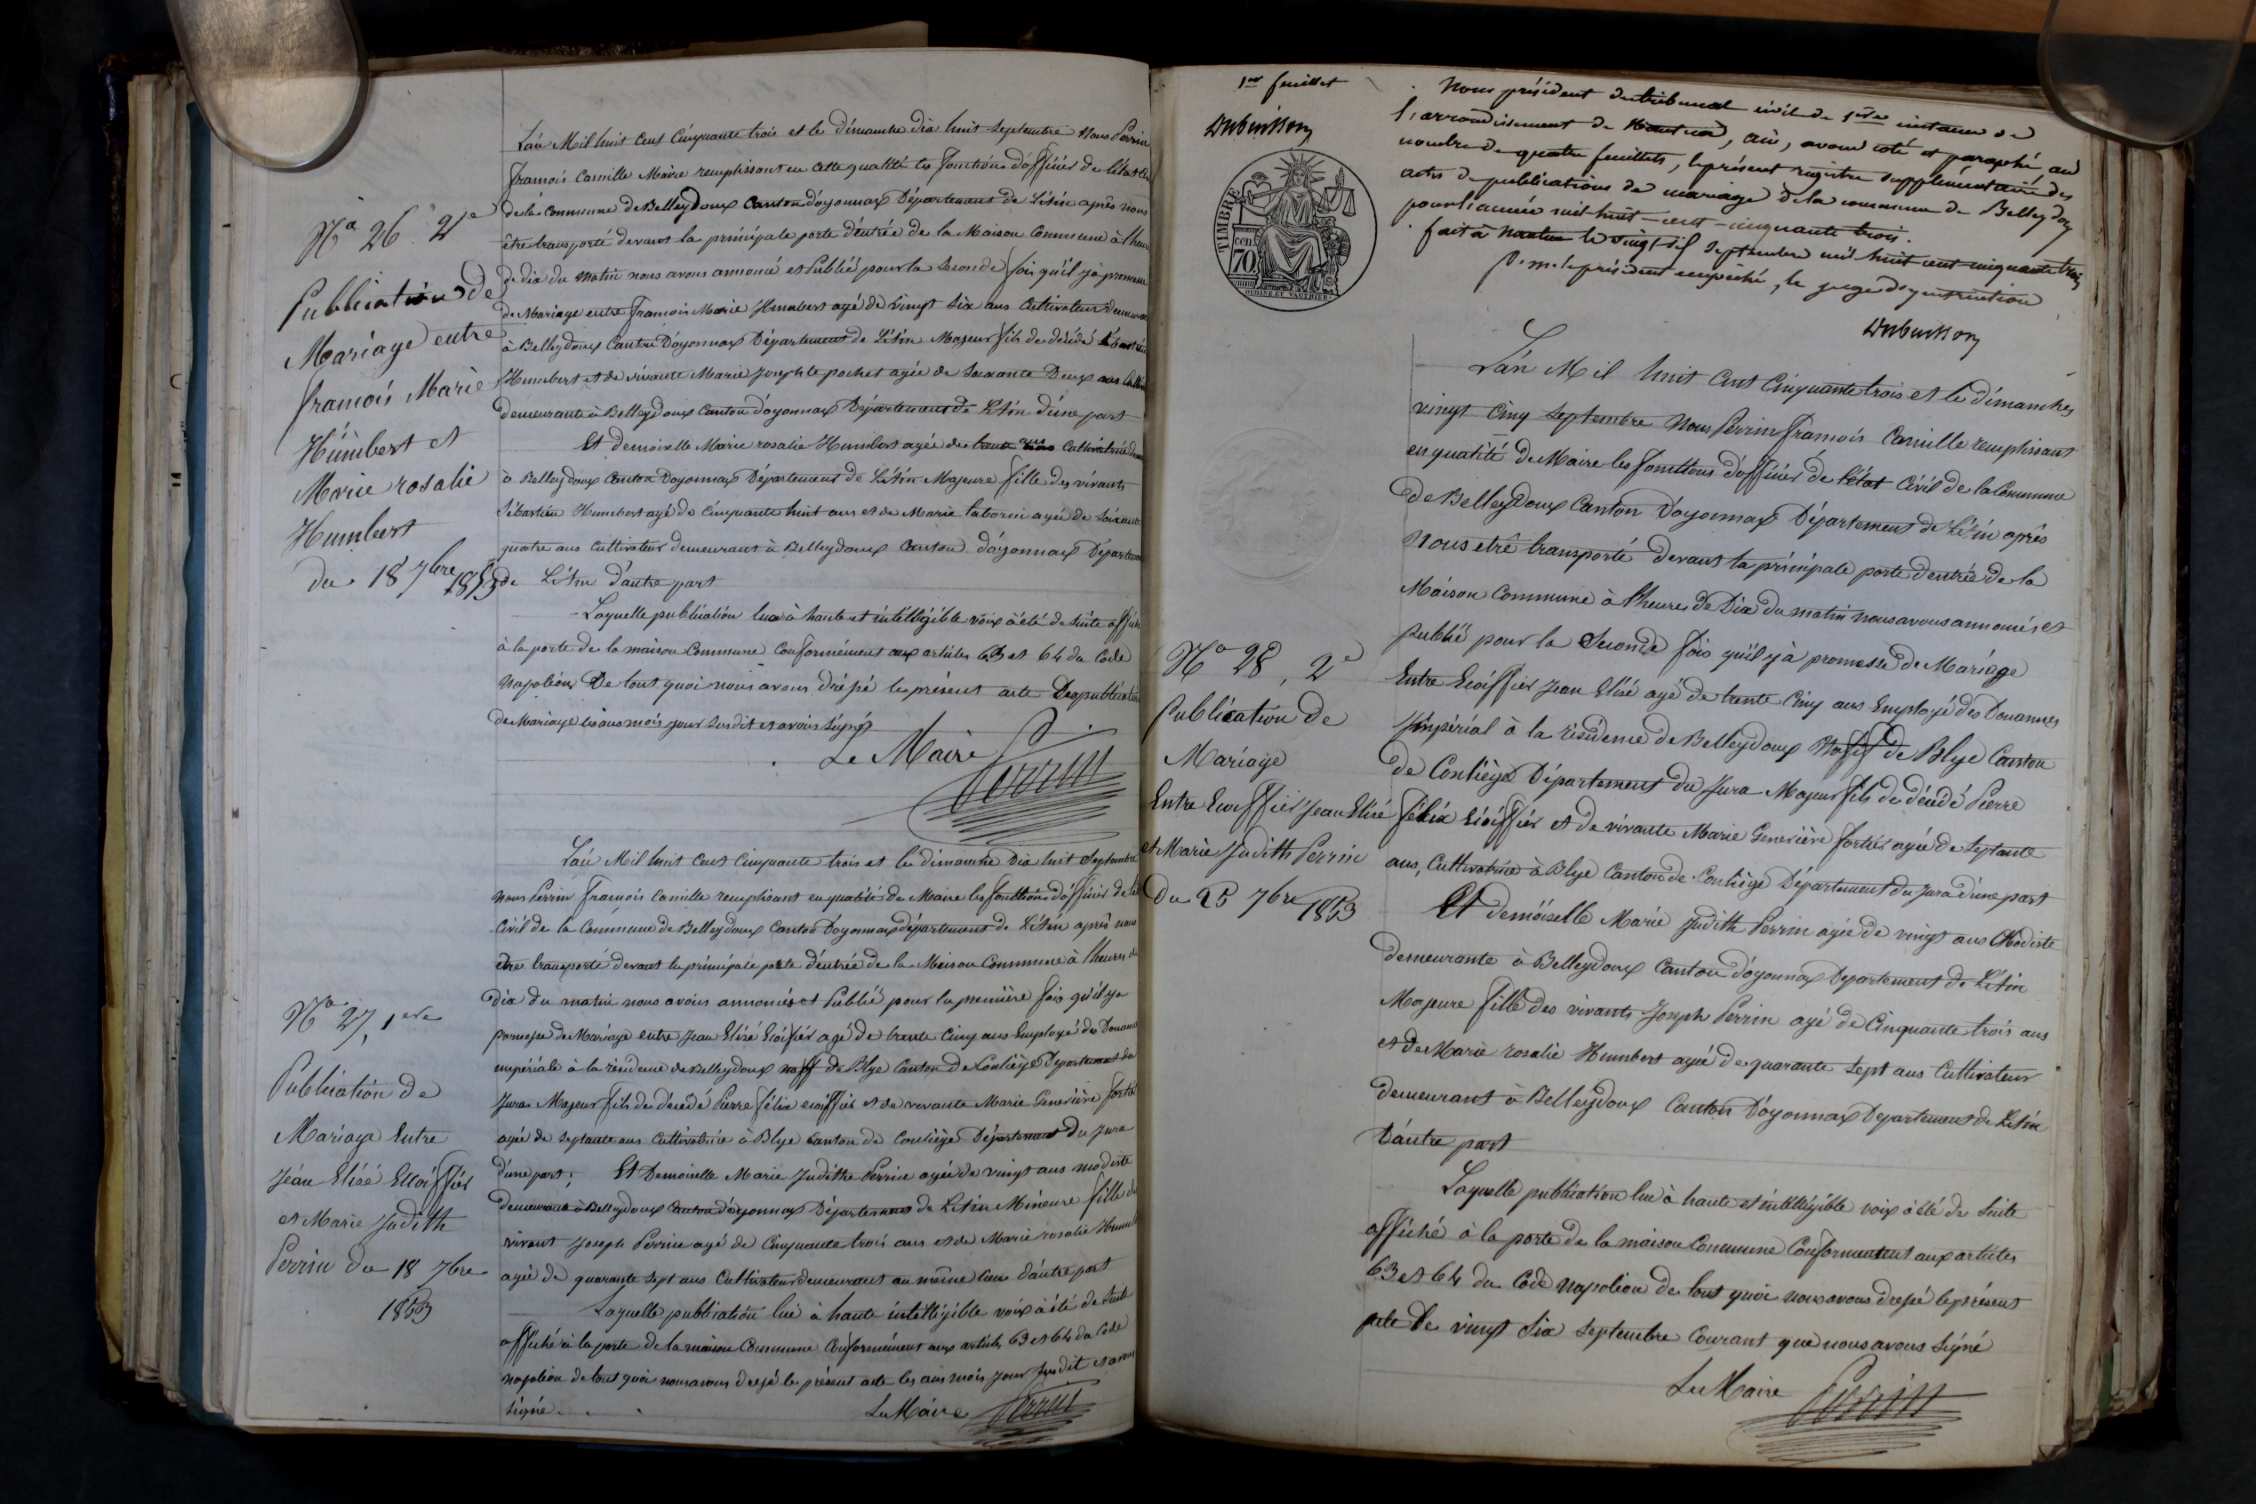 Nº 26 2e
Publication de
Mariage entre
françois Marie
Humbert et
Marie rosalie
Humbert
du 18 7bre 1853
L'án Mil huit Cent Cinquante trois et le dimanche dix huit Septembre Nous Perrin
françois Camille Maire remplissant en cette qualité les fonctions d'officier de l'état
de la Commune de Belleydoux Canton d'oyonnax Département de L'Ain après nous
être transporté devant la principale porte d'entrée de la Maison Commune à l'heure
de dix du matin nous avons annoncé et Publié pour la Seconde fois qu'il y à promesse
de Mariage entre françois Marie Humbert agé de vingt Six ans Cultivateur
à Belleydoux Canton D'oyonnax Département de L'Ain Majeur fils de décédé
Humbert et de vivante Marie Josephte pochet agée de Soixante Deux ans
demeurante à Belleydoux Canton d'oyonnax Département de L'Ain d'une part
Et demoiselle Marie rosalie Humbert agée de trente Cultivatrice
à Belleydoux Canton Doyonnax Département de L'Ain Majeure fille des vivants
Sébastien Humbert agé de Cinquante huit ans et de Marie agée de Soixante
quatre ans Cultivateur demeurant à Belleydoux Canton d'oyonnax Département
de L'Ain d'autre part
Laquelle publication lue à haute et intélligible voix à été de Suite
à la porte de la maison Commune Conformément aux articles 63 et 64 du Code
Napoléon De tout quoi nous avons dréssé le présent acte De publication
de Mariage les ans mois jour Susdit et avons Signé
Le Maire Perrin
Nº 27, 1ere
Publication de
Mariage Entre
Jéan Elisé Ecoiffier
et Marie Judith
Perrin du 18 7bre
1853
L'án Mil huit Cent Cinquante trois et le dimanche Dix huit Septembre
Nous Perrin françois Camille remplissant en qualité de Maire les fonctions d'officier de
Civil de la Commune de Belleydoux Canton D'oyonnax département de L'Ain après nous
être transporté devant la principale porte d'entrée de la Maison Commune à l'heure de
dix du matin nous avons annoncés et Publié pour la première fois qu'il y a
promesse de Mariage entre Jean Elisé Ecoiffier agé de trente Cinq ans Employé des Douanes
impériale à la résidence de Belleydoux natif de Blye Canton de Conliège Département du
Jura Majeur fils de décédé Pierre félix ecoiffier et de vivante Marie Geneviève fortier
agée de Septante ans Cultivatrice à Blye Canton de Conliège Département Du Jura
d'une part; Et Demoiselle Marie Judithe Perrin agée de vingt ans modiste
demeurante à Belleydoux Canton d'oyonnax Département de L'Ain Mineure fille de
vivant Joseph Perrin agé de Cinquante trois ans et de Marie rosalie Humbert
agée de quarante Sept ans Cultivateur demeurant au même lieu d'autre part
Laquelle publication lue à haute intélligible voix à été de Suite
affiché à la porte de la maison Commune Conformément aux articles 63 et 64 du Code
napoléon de tout quoi nous avons dressé le présent acte les ans mois jour Susdit et avons
Signé Le Maire Perrin
1er feuillet
Dubuisson
TIMBRE
cen.
70
Nous président du tribunal civil de 1ère instance de
l'arrondissement de Nantua, ain, avons coté et paraphé, au
nombre de quatre feuillets, le présent registre supplémentaire des
actes de publications de mariage de la commune de Belleydoux
pour l'année mil huit-cent-cinquante trois.
fait à Nantua le vingt-sept septembre mil huit cent cinquante trois
P. m. le président empêché, le juge d'instruction
Dubuisson
Nº 28, 2e
Publication de
Mariage
Entre Ecoiffier Jean Elisé
et Marie Judith Perrin
Du 25 7bre 1853
L'án Mil huit Cent Cinquante trois et le dimanche
vingt Cinq Septembre Nous Perrin françois Camille remplissant
en qualité de Maire les fonctions d'officier de l'état Civil de la Commune
de Belleydoux Canton D'oyonnax Département de L'Ain après
Nous etrê transporté devant la principale porte d'entrée de la
Maison Commune à l'heure de Dix du matin nous avons annoncés et
Publié pour la Seconde fois qu'il y à promesse de Mariage
Entre Ecoiffier Jean Elisé agé de trente Cinq ans Employé des Douannes
Impérial à la résidence de Belleydoux Natif de Blye Canton
de Conliège Département du Jura Majeur fils de décédé Pierre
félix Ecoiffier et de vivante Marie Geneviève fortier agée de Septante
ans, Cultivatrice à Blye Canton de Conliège Département du Jura d'une part
Et demoiselle Marie Judith Perrin agée de vingt ans Modiste
demeurante à Belleydoux Canton d'oyonnax Département de L'Ain
Majeure fille des vivants Joseph Perrin agé de Cinquante trois ans
et de Marie rosalie Humbert agée de quarante Sept ans Cultivateur
demeurant à Belleydoux Canton D'oyonnax Département de L'Ain
D'autre part
Laquelle publication lue à haute et intélligible voix à été de Suite
affiché à la porte de la maison Commune Conformément aux articles
63 et 64 du Code napoléon de tout quoi nous avons dressé le présent
acte le vingt Six Septembre Courant que nous avons Signé
Le Maire Perrin